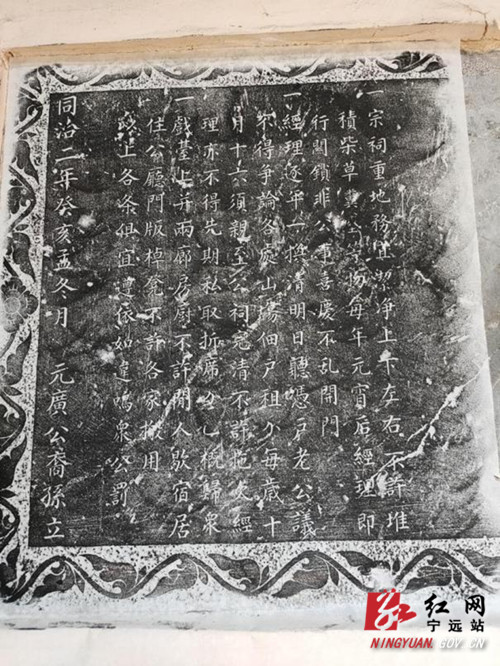 一宗祠重地務宜潔净上下左右不許堆
積柴草 物每年元宵后經理即
行關鎖非公事喜慶不乱開門
一經理逐年一換清明日聽憑户老公議
不得争論各處山場佃户租少每歲十
月十六須親至公祠兑清不許拖欠經
理亦不得先期私取折席 概歸衆
一戲臺上并兩廊房厨不許閒人歇宿居
住公廳門版棹凳不許各家搬用
以上各条俱宜遵依如違鳴衆公罰
同治二年癸亥孟冬月 元廣公裔孫立
红网
宁远站
NINGYUAN.GOV.CN